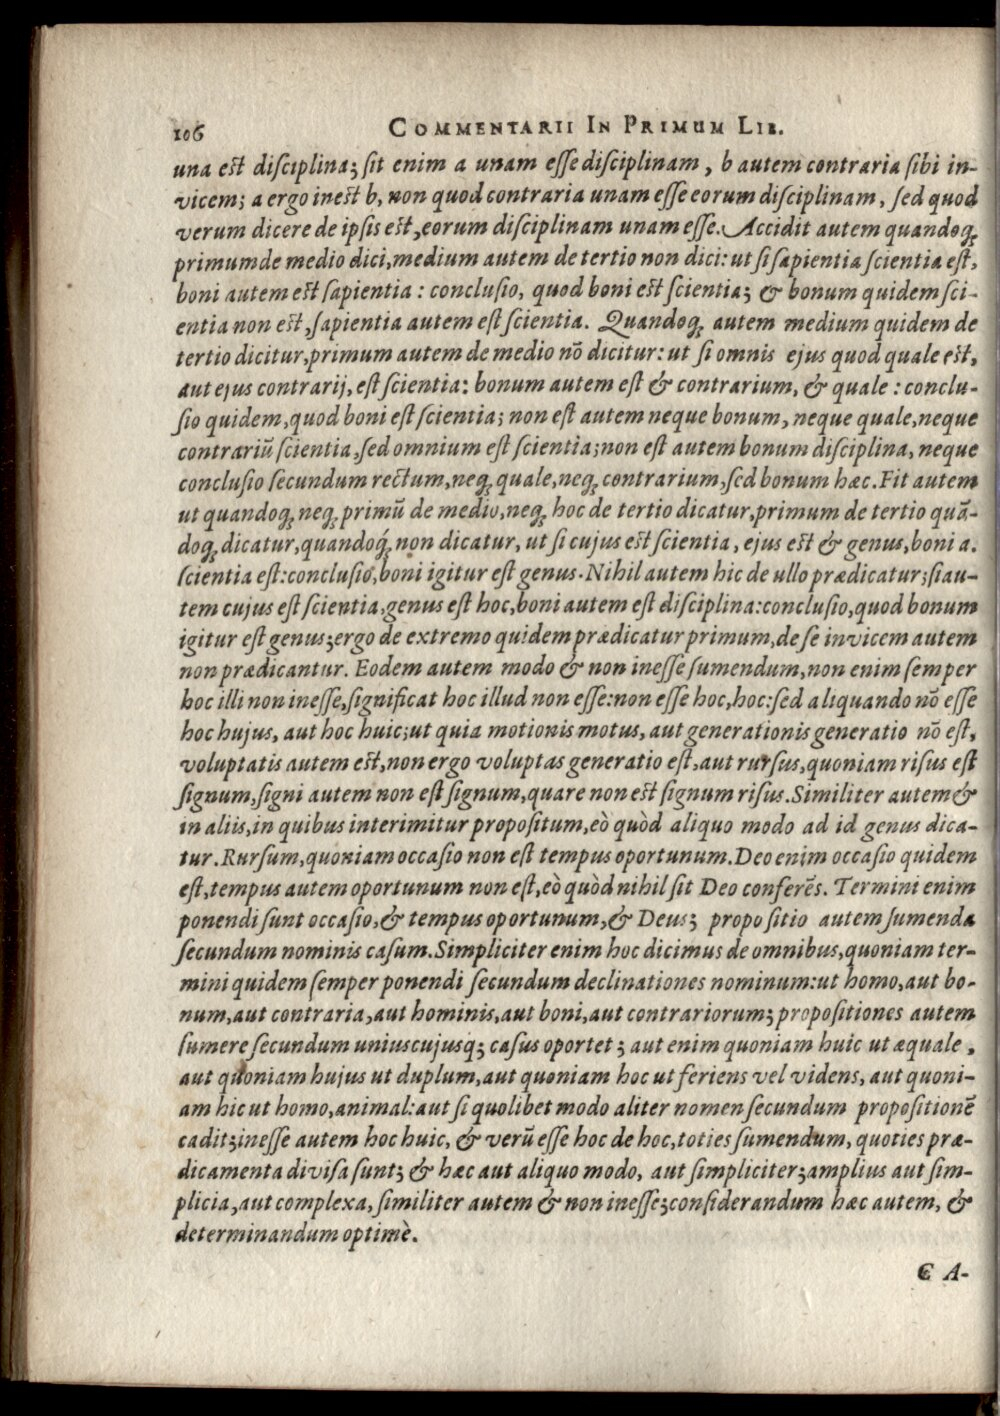 106 COMMENTARII IN PRIMUM LIB.
una est disciplina; sit enim a unam esse disciplinam, b autem contraria sibi in-
vicem; a ergo inest b, non quod contraria unam esse eorum disciplinam, sed quod
verum dicere de ipsis est, eorum disciplinam unam esse. Accidit autem quandoq;
primum de medio dici, medium autem de tertio non dici: ut si sapientia scientia est,
boni autem est sapientia: conclusio, quod boni est scientia; & bonum quidem sci-
entia non est, sapientia autem est scientia. Quandoq; autem medium quidem de
tertio dicitur, primum autem de medio nō dicitur: ut si omnis ejus quod quale est,
aut ejus contrarij, est scientia: bonum autem est & contrarium, & quale: conclu-
sio quidem, quod boni est scientia; non est autem neque bonum, neque quale, neque
contrariū scientia, sed omnium est scientia; non est autem bonum disciplina, neque
conclusio secundum rectum, neq; quale, neq; contrarium, sed bonum hæc. Fit autem
ut quandoq; neq; primū de medio, neq; hoc de tertio dicatur, primum de tertio quā-
doq; dicatur, quandoq́; non dicatur, ut si cujus est scientia, ejus est & genus, boni a.
scientia est: conclusio, boni igitur est genus. Nihil autem hic de ullo prædicatur; si au-
tem cujus est scientia, genus est hoc, boni autem est disciplina: conclusio, quod bonum
igitur est genus; ergo de extremo quidem prædicatur primum, de se invicem autem
non prædicantur. Eodem autem modo & non inesse sumendum, non enim semper
hoc illi non inesse, significat hoc illud non esse: non esse hoc, hoc: sed aliquando nō esse
hoc hujus, aut hoc huic; ut quia motionis motus, aut generationis generatio nō est,
voluptatis autem est, non ergo voluptas generatio est, aut rursus, quoniam risus est
signum, signi autem non est signum, quare non est signum risus. Similiter autem &
in aliis, in quibus interimitur propositum, eò quòd aliquo modo ad id genus dica-
tur. Rursum, quoniam occasio non est tempus oportunum. Deo enim occasio quidem
est, tempus autem oportunum non est, eò quòd nihil sit Deo conferēs. Termini enim
ponendi sunt occasio, & tempus oportunum, & Deus; propositio autem sumenda
secundum nominis casum. Simpliciter enim hoc dicimus de omnibus, quoniam ter-
mini quidem semper ponendi secundum declinationes nominum: ut homo, aut bo-
num, aut contraria, aut hominis, aut boni, aut contrariorum; propositiones autem
sumere secundum uniuscujusq; casus oportet; aut enim quoniam huic ut æquale,
aut quoniam hujus ut duplum, aut quoniam hoc ut feriens vel videns, aut quoni-
am hic ut homo, animal: aut si quolibet modo aliter nomen secundum propositionē
cadit; inesse autem hoc huic, & verū esse hoc de hoc, toties sumendum, quoties præ-
dicamenta divisa sunt; & hæc aut aliquo modo, aut simpliciter; amplius aut sim-
plicia, aut complexa, similiter autem & non inesse; considerandum hæc autem, &
determinandum optimè.
C A-